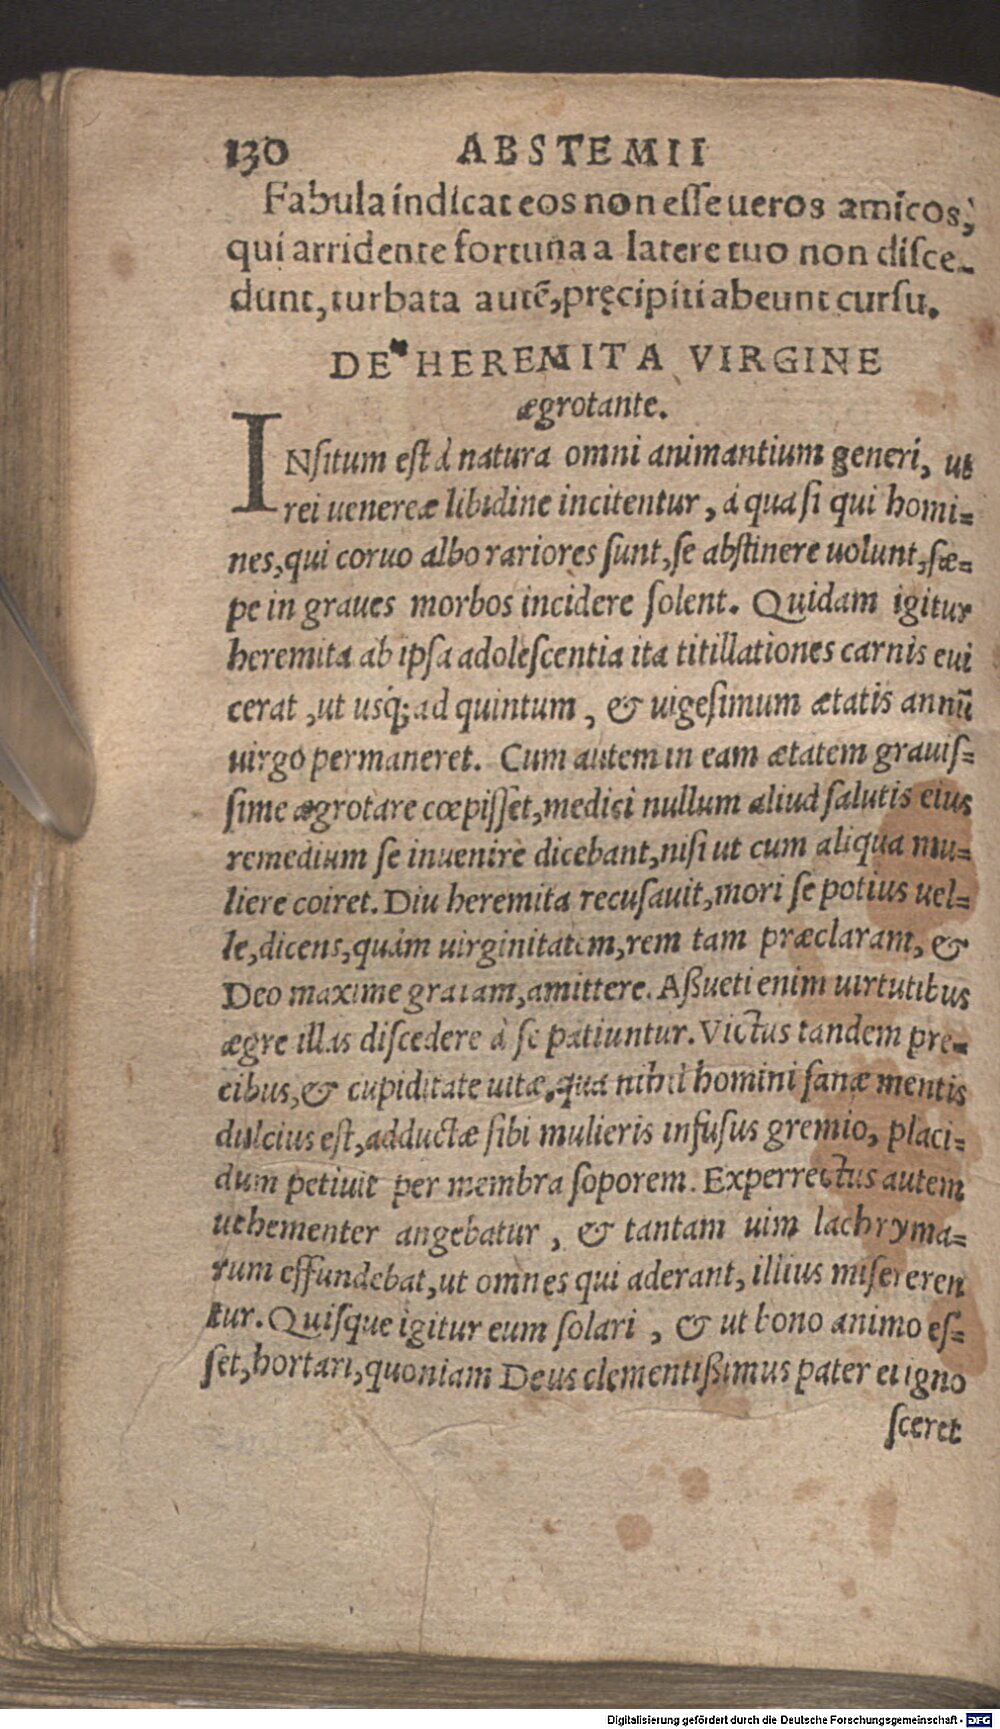 130 ABSTEMII
Fabula indicat eos non eſſe ueros amicos,
qui arridente fortuna a latere tuo non diſce-
dunt, turbata autē, pręcipiti abeunt curſu.
DE HEREMITA VIRGINE
ægrotante.
INſitum eſt à natura omni animantium generi, ut
rei uenereæ libidine incitentur, à qua ſi qui homi=
nes, qui coruo albo rariores ſunt, ſe abſtinere uolunt, ſæ=
pe in graues morbos incidere ſolent. Quidam igitur
heremita ab ipſa adoleſcentia ita titillationes carnis eui
cerat, ut uſq; ad quintum, & uigeſimum ætatis annū
uirgo permaneret. Cum autem in eam ætatem grauiſ=
ſime ægrotare cœpiſſet, medici nullum aliud ſalutis eius
remedium ſe inuenire dicebant, niſi ut cum aliqua mu=
liere coiret. Diu heremita recuſauit, mori ſe potius uel=
le, dicens, quàm uirginitatem, rem tam præclaram, &
Deo maxime gratam, amittere. Aßueti enim uirtutibus
ægre illas diſcedere à ſe patiuntur. Victus tandem pre-
cibus, & cupiditate uitæ, qua nihil homini ſanæ mentis
dulcius eſt, adductæ ſibi mulieris infuſus gremio, placi=
dum petiuit per membra ſoporem. Experrectus autem
uehementer angebatur, & tantam uim lachryma=
rum effundebat, ut omnes qui aderant, illius miſereren
tur. Quiſque igitur eum ſolari, & ut bono animo eſ=
ſet, hortari, quoniam Deus clementißimus pater ei igno
ſceret
Digitalisierung gefördert durch die Deutsche Forschungsgemeinschaft - DFG